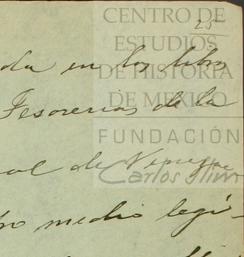 CENTRO DE
25
ESTUDIOS
DE HISTORIA
DE MEXICO
FUNDACIÓN
Carlos Slim
da en los libro
Tesorerias de la
al de
ro medio legí-